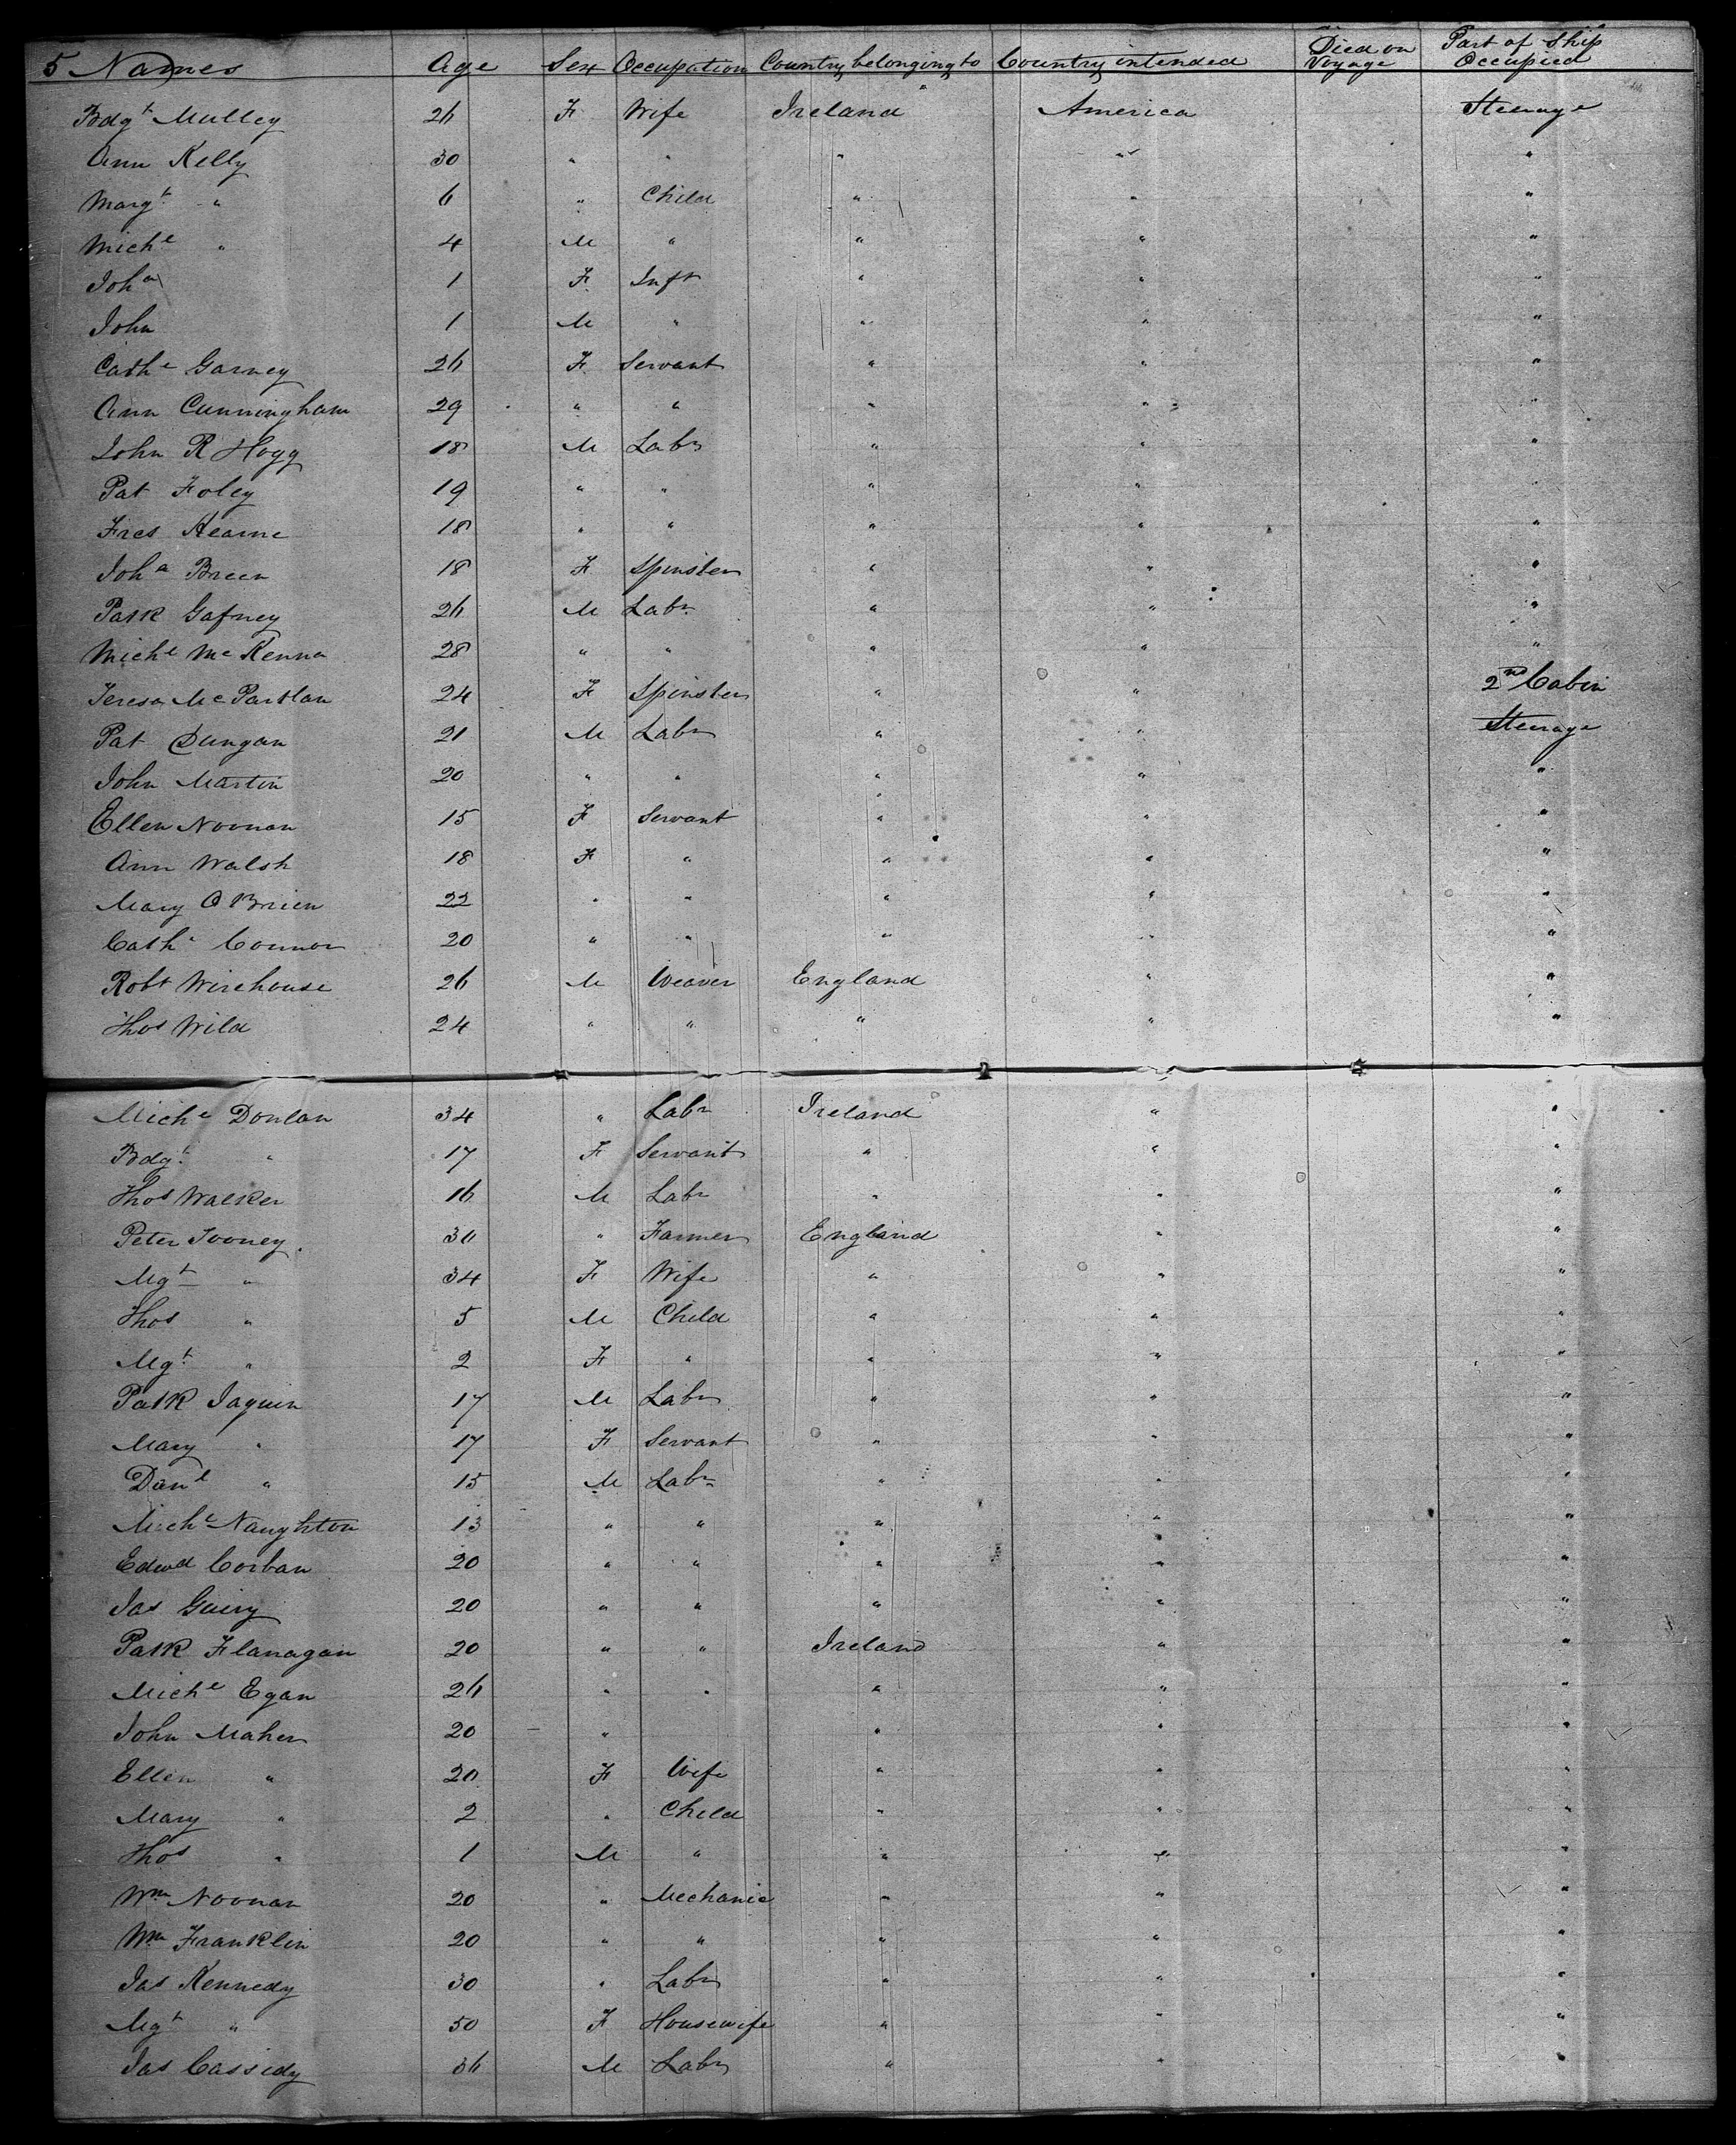 5 Names Age Sex Occupation Country belonging to Country intended Died on Voyage Part of Ship Occupied
Bdgt Mulley 26 F Wife Ireland America Steerage
Ann Kelly 30 " " " " "
Margt " 6 " Child " " "
Michl " 4 M " " " "
Joha 1 F Inft " " "
John 1 M " " " "
Cathe Garney 26 F Servant " " "
Ann Cunningham 29 " " " " "
John R Hogg 18 M Labr " " "
Pat Foley 19 " " " " "
Fres Kearne 18 " " " " "
Joha Breen 18 F Spinster " " "
Patk Gafney 26 M Labr " " "
Michl McKenna 28 " " " " "
Teresa McPartlan 24 F Spinster " " 2nd Cabin
Pat Dungan 21 M Labr " " Steerage
John Martin 20 " " " " "
Ellen Noonan 15 F Servant " " "
Ann Walsh 18 F " " " "
Mary O Brien 22 " " " " "
Cathe Connor 20 " " " " "
Robt Wirehouse 26 M Weaver England " "
Thos Wild 24 " " " " "
Michl Donlan 34 " Labr Ireland " "
Bdgt " 17 F Servant " " "
Thos Walker 16 M Labr " " "
Peter Tooney 30 " Farmer England " "
Mgt " 34 F Wife " " "
Thos " 5 M Child " " "
Mgt " 2 F " " " "
Patk Jaquin 17 M Labr " " "
Mary " 17 F Servant " " "
Danl " 15 M Labr " " "
Michl Naughton 13 " " " " "
Edwd Corban 20 " " " " "
Jas Guiry 20 " " " " "
Patk Flanagan 20 " " Ireland " "
Michl Egan 26 " " " " "
John Maher 20 " " " "
Ellen " 20 F Wife " " "
Mary " 2 " Child " " "
Thos " 1 M " " " "
Wm Noonan 20 " Mechanic " " "
Wm Franklin 20 " " " " "
Jas Kennedy 30 " Labr " " "
Mgt " 50 F Housewife " " "
Jas Cassidy 36 M Labr " " "